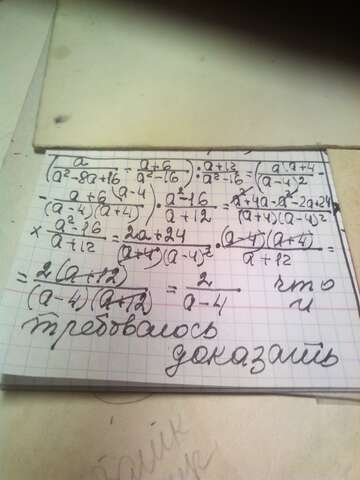 (a/(a²-8a+16) - (a+6)/(a²-16)) : (a+12)/(a²-16) = (a\a+4/(a-4)² -
- a+6\a-4/((a-4)(a+4))) · (a²-16)/(a+12) = (a²+4a-a²-2a+24)/((a+4)(a-4)²) ×
× (a²-16)/(a+12) = (2a+24)/((a+4)(a-4)²) · ((a-4)(a+4))/(a+12) =
= 2(a+12)/((a-4)(a+12)) = 2/(a-4) . что
и
требовалось
доказать